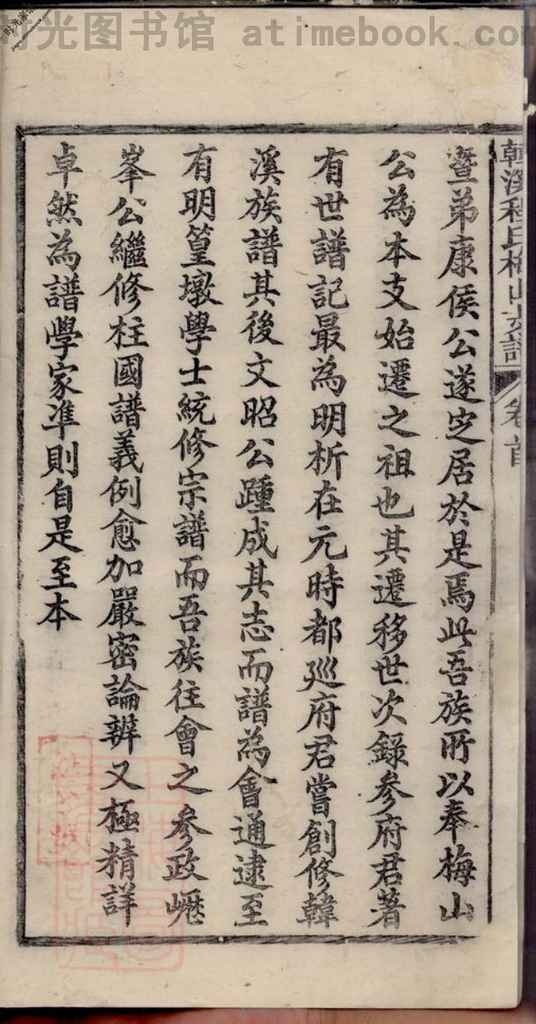 时光图书馆 atimebook.com
韓溪程氏梅山支譜 卷首
暨弟康侯公遂定居於是焉此吾族所以奉梅山
公為本支始遷之祖也其遷移世次錄參府君著
有世譜記最為明析在元時都巡府君嘗創修韓
溪族譜其後文昭公踵成其志而譜為會通逮至
有明篁墩學士統修宗譜而吾族往會之參政㠣
峯公繼修柱國譜義例愈加嚴密論辨又極精詳
卓然為譜學家準則自是至本